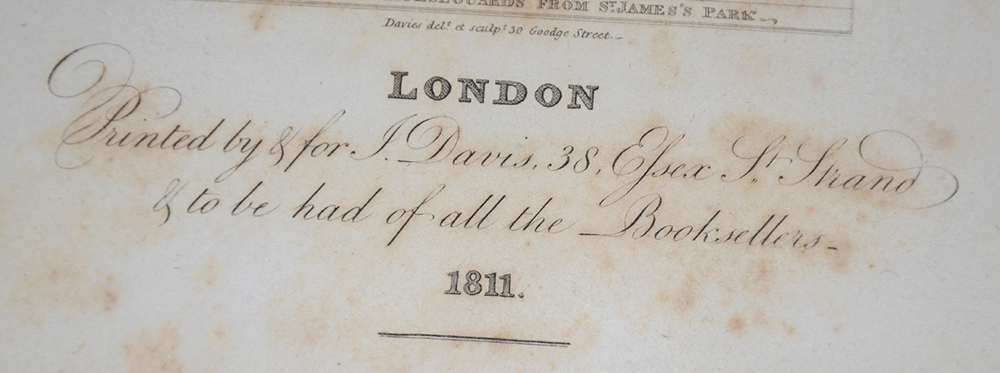 FROM St. JAMES'S PARK
Davies delt. et sculpt. 30 Goodge Street.
LONDON
Printed by & for J. Davis, 38, Eſsex St. Strand
& to be had of all the Booksellers
1811.